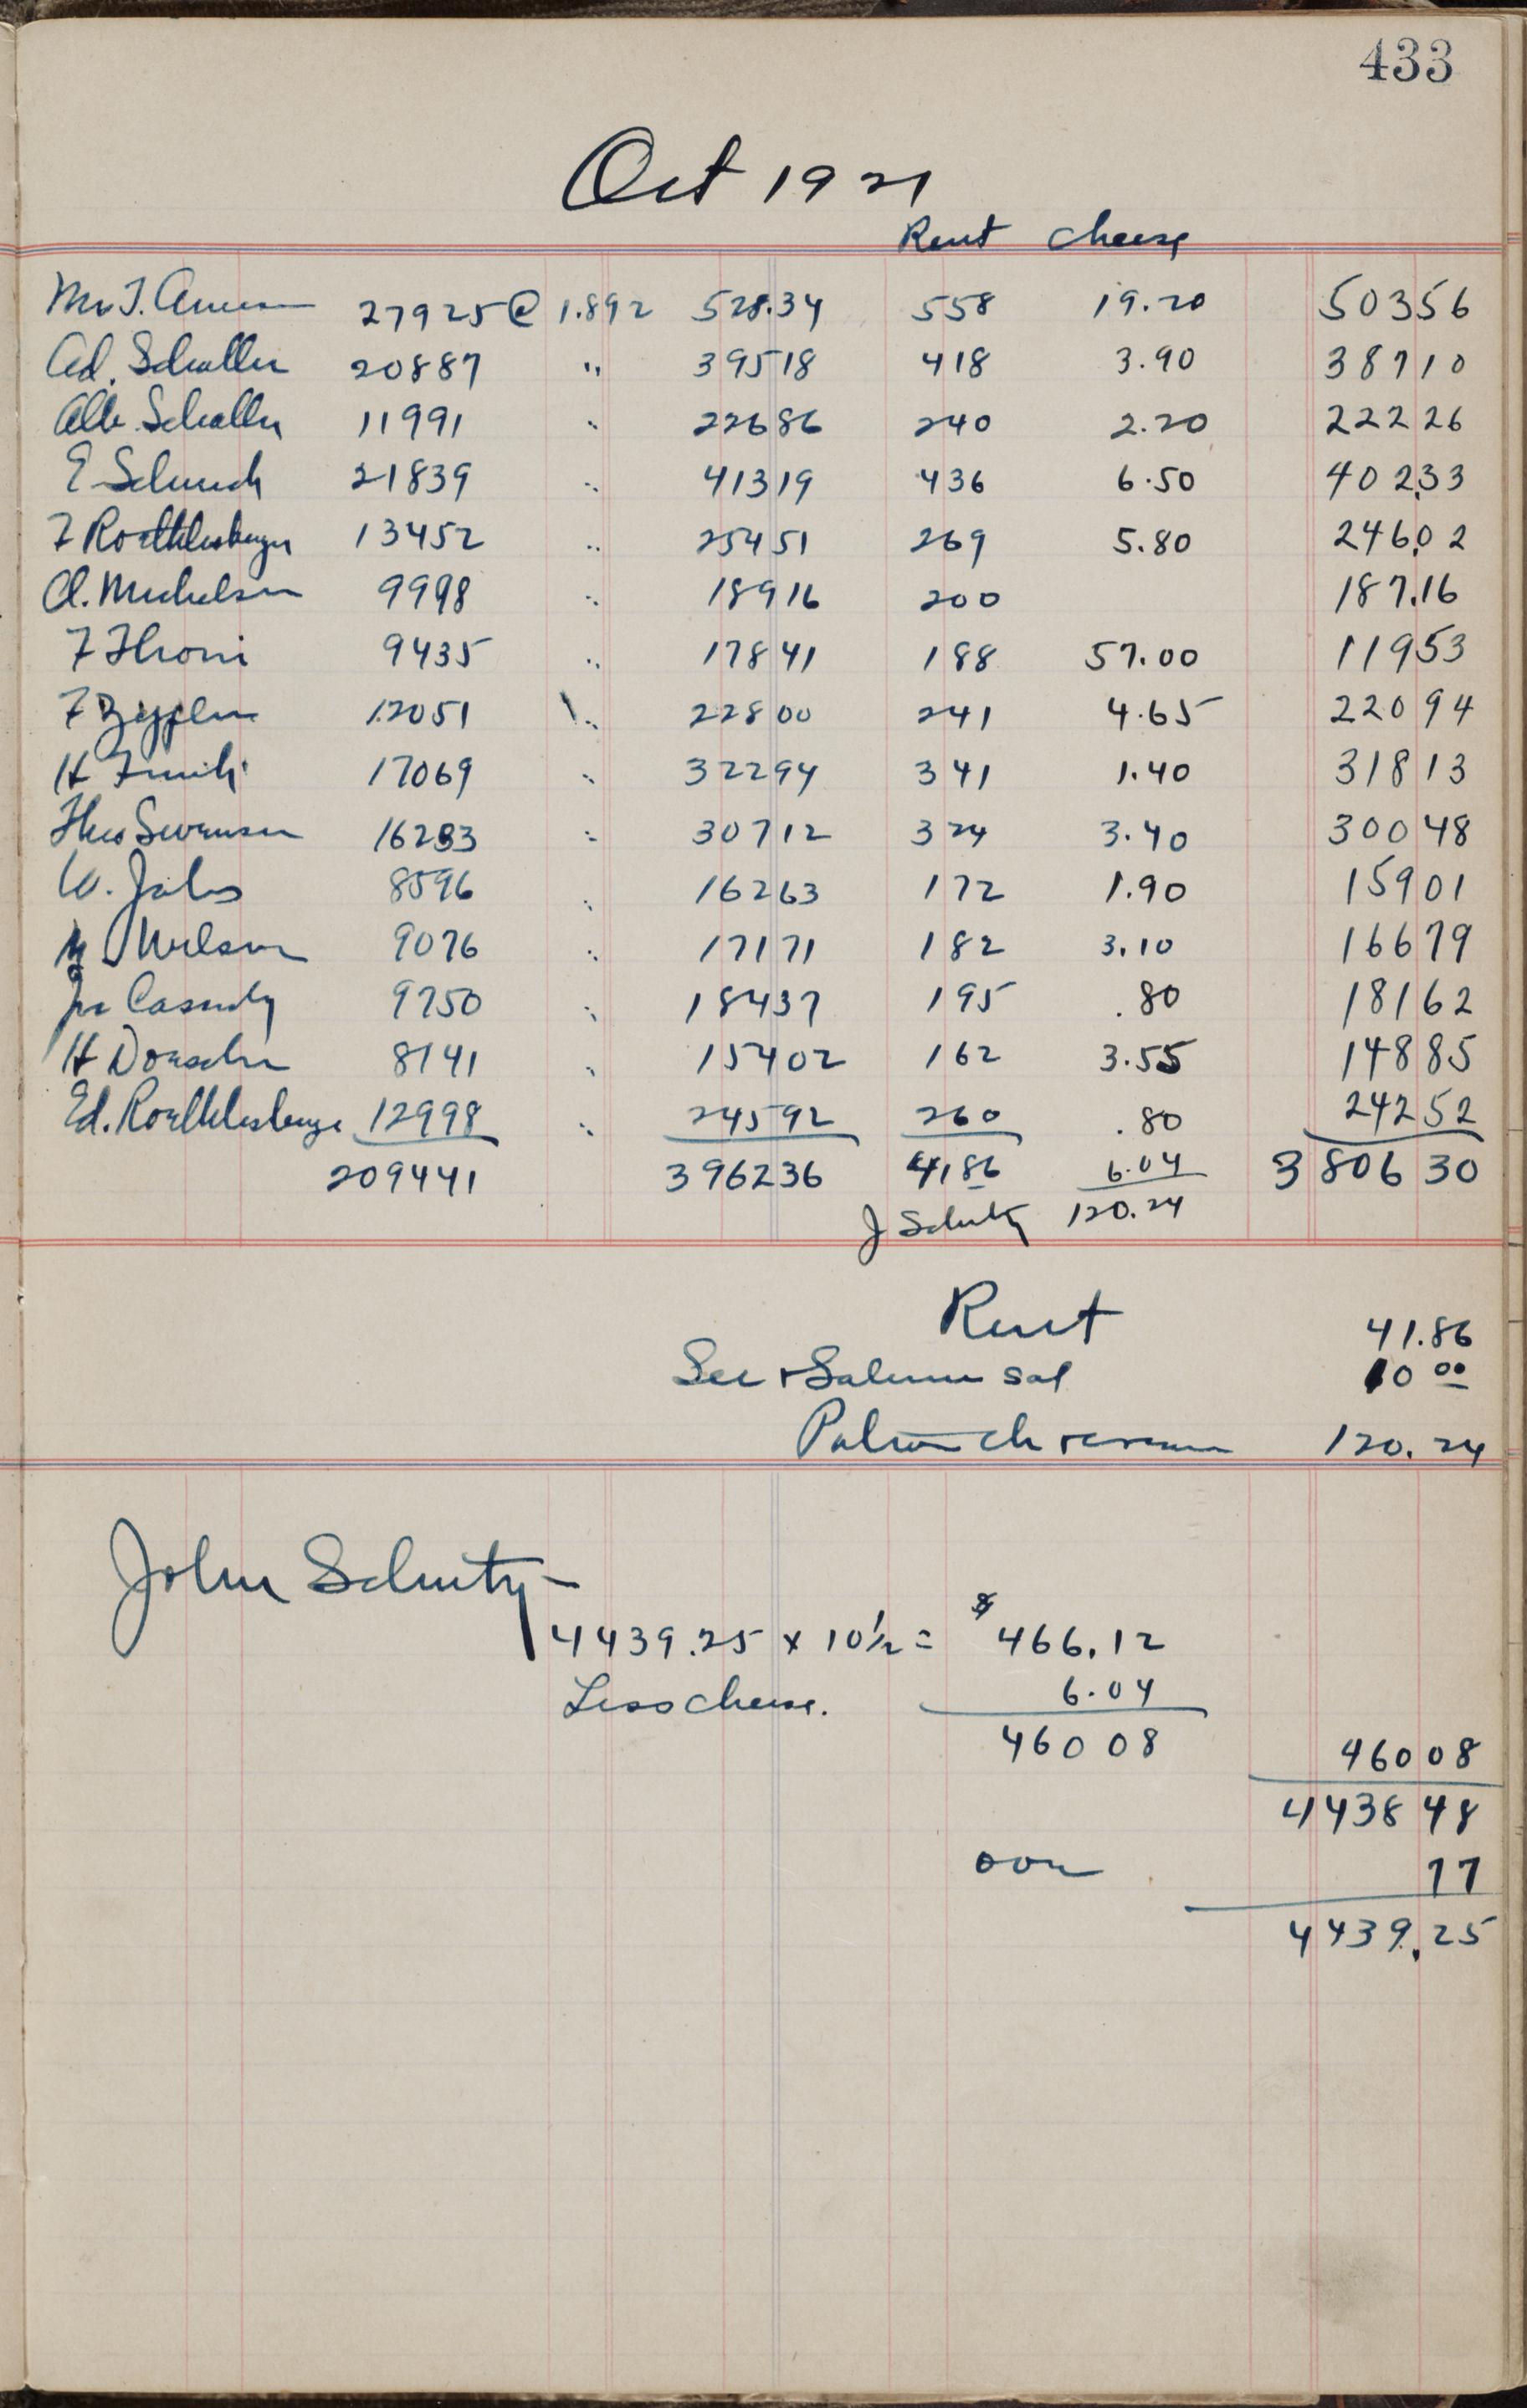 433
Oct 1921
Rent Cheese
Mrs T. 27925 @ 1.892 528.34 558 19.20 50356
Ad. Schaller 20887 " 39518 418 3.90 38710
Alb. Schaller 11991 " 22686 240 2.20 22226
E 21839 " 41319 436 6.50 40233
F Roethlisberger 13452 " 25451 269 5.80 246.02
A. Michelson 9998 " 18916 200 187.16
F Thoni 9435 " 17841 188 57.00 11953
F 12051 " 22800 241 4.65 22094
H 17069 " 32294 341 1.40 31813
Theo Swenson 16233 " 30712 324 3.40 30048
W. 8596 " 16263 172 1.90 15901
Wilson 9076 " 17171 182 3.10 16679
Cassidy 9750 " 18437 195 .80 18162
H 8141 " 15402 162 3.55 14885
Ed. Roethlisberger 12998 " 24592 260 .80 24252
209441 396236 41,86 6.04 3 806 30
J Schutz 120.24
Rent 41.86
Sec + Salesm sal 10 00
Patron ch 120.24
John Schutz -
4439.25 x 10½ = $ 466.12
Less cheese. 6.04
46008 46008
443848
over 77
4439.25